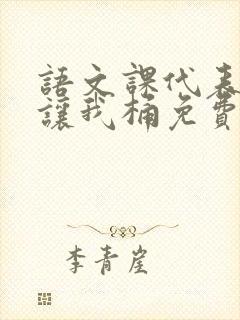 語文課代表
讓我桶免費
李青崖